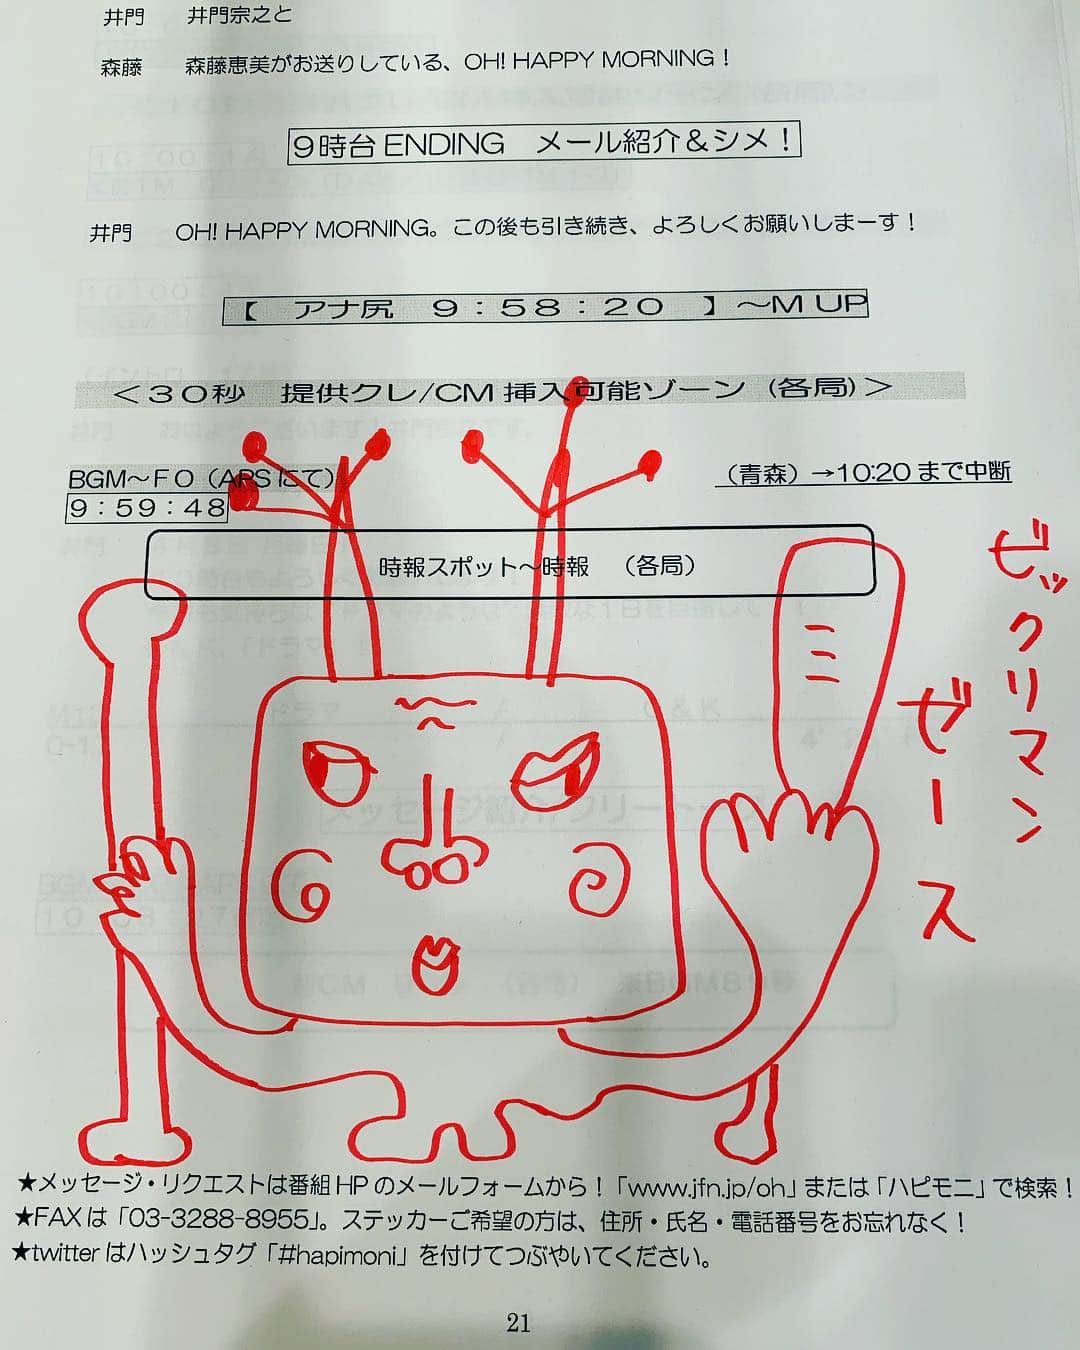 井門　井門宗之と
森藤　森藤恵美がお送りしている、OH! HAPPY MORNING！
9時台 ENDING　メール紹介＆シメ！
井門　OH! HAPPY MORNING。この後も引き続き、よろしくお願いしまーす！
【　アナ尻　9：58：20　】～M UP
＜30秒　提供クレ/CM 挿入可能ゾーン（各局）＞
BGM～FO（APSにて）
（青森）→10:20まで中断
9：59：48
時報スポット～時報　（各局）
ビックリマン
ゼース
★メッセージ・リクエストは番組HPのメールフォームから！「www.jfn.jp/oh」または「ハピモニ」で検索！
★FAXは「03-3288-8955」。ステッカーご希望の方は、住所・氏名・電話番号をお忘れなく！
★twitterはハッシュタグ「#hapimoni」を付けてつぶやいてください。
21